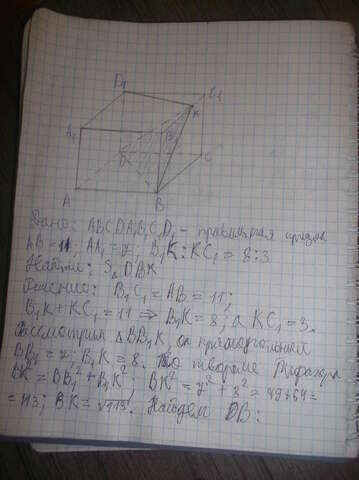 D₁
C₁
K
A₁
B₁
D
C
A
B
Дано: ABCDA₁B₁C₁D₁ - правильная призма
AB = 11; AA₁ = 7; B₁K : KC₁ = 8:3
Найти: S△DBK
Решение: B₁C₁ = AB = 11;
B₁K + KC₁ = 11 ⇒ B₁K = 8, а KC₁ = 3.
Рассмотрим △BB₁K, он прямоугольный
BB₁ = 7; B₁K = 8. По теореме Пифагора
BK² = BB₁² + B₁K²; BK² = 7² + 8² = 49+64=
= 113; BK = √113. Найдем DB: